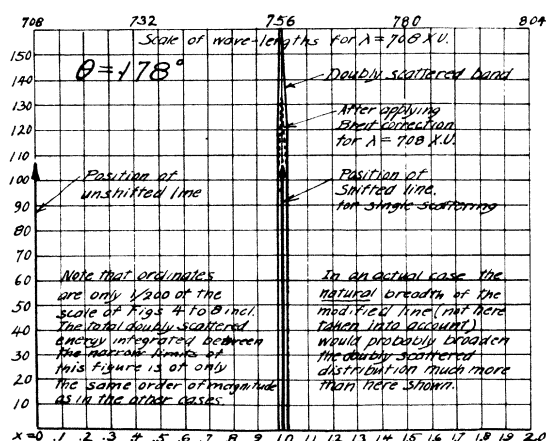 708 732 756 780 804
Scale of wave-lengths for λ = 708 XU.
θ = 178°
Doubly scattered band
After applying
Breit correction
for λ = 708 X.U.
Position of
unshifted line
Position of
Shifted line.
for single scattering
Note that ordinates
are only 1/200 of the
scale of Figs 4 to 8 incl.
The total doubly scattered
energy integrated between
the narrow limits of
this figure is of only
the same order of magnitude
as in the other cases.
In an actual case the
natural breadth of the
modified line (not here
taken into account)
would probably broaden
the doubly scattered
distribution much more
than here shown.
150
140
130
120
110
100
90
80
70
60
50
40
30
20
10
x = 0 .1 .2 .3 .4 .5 .6 .7 .8 .9 1.0 1.1 1.2 1.3 1.4 1.5 1.6 1.7 1.8 1.9 2.0